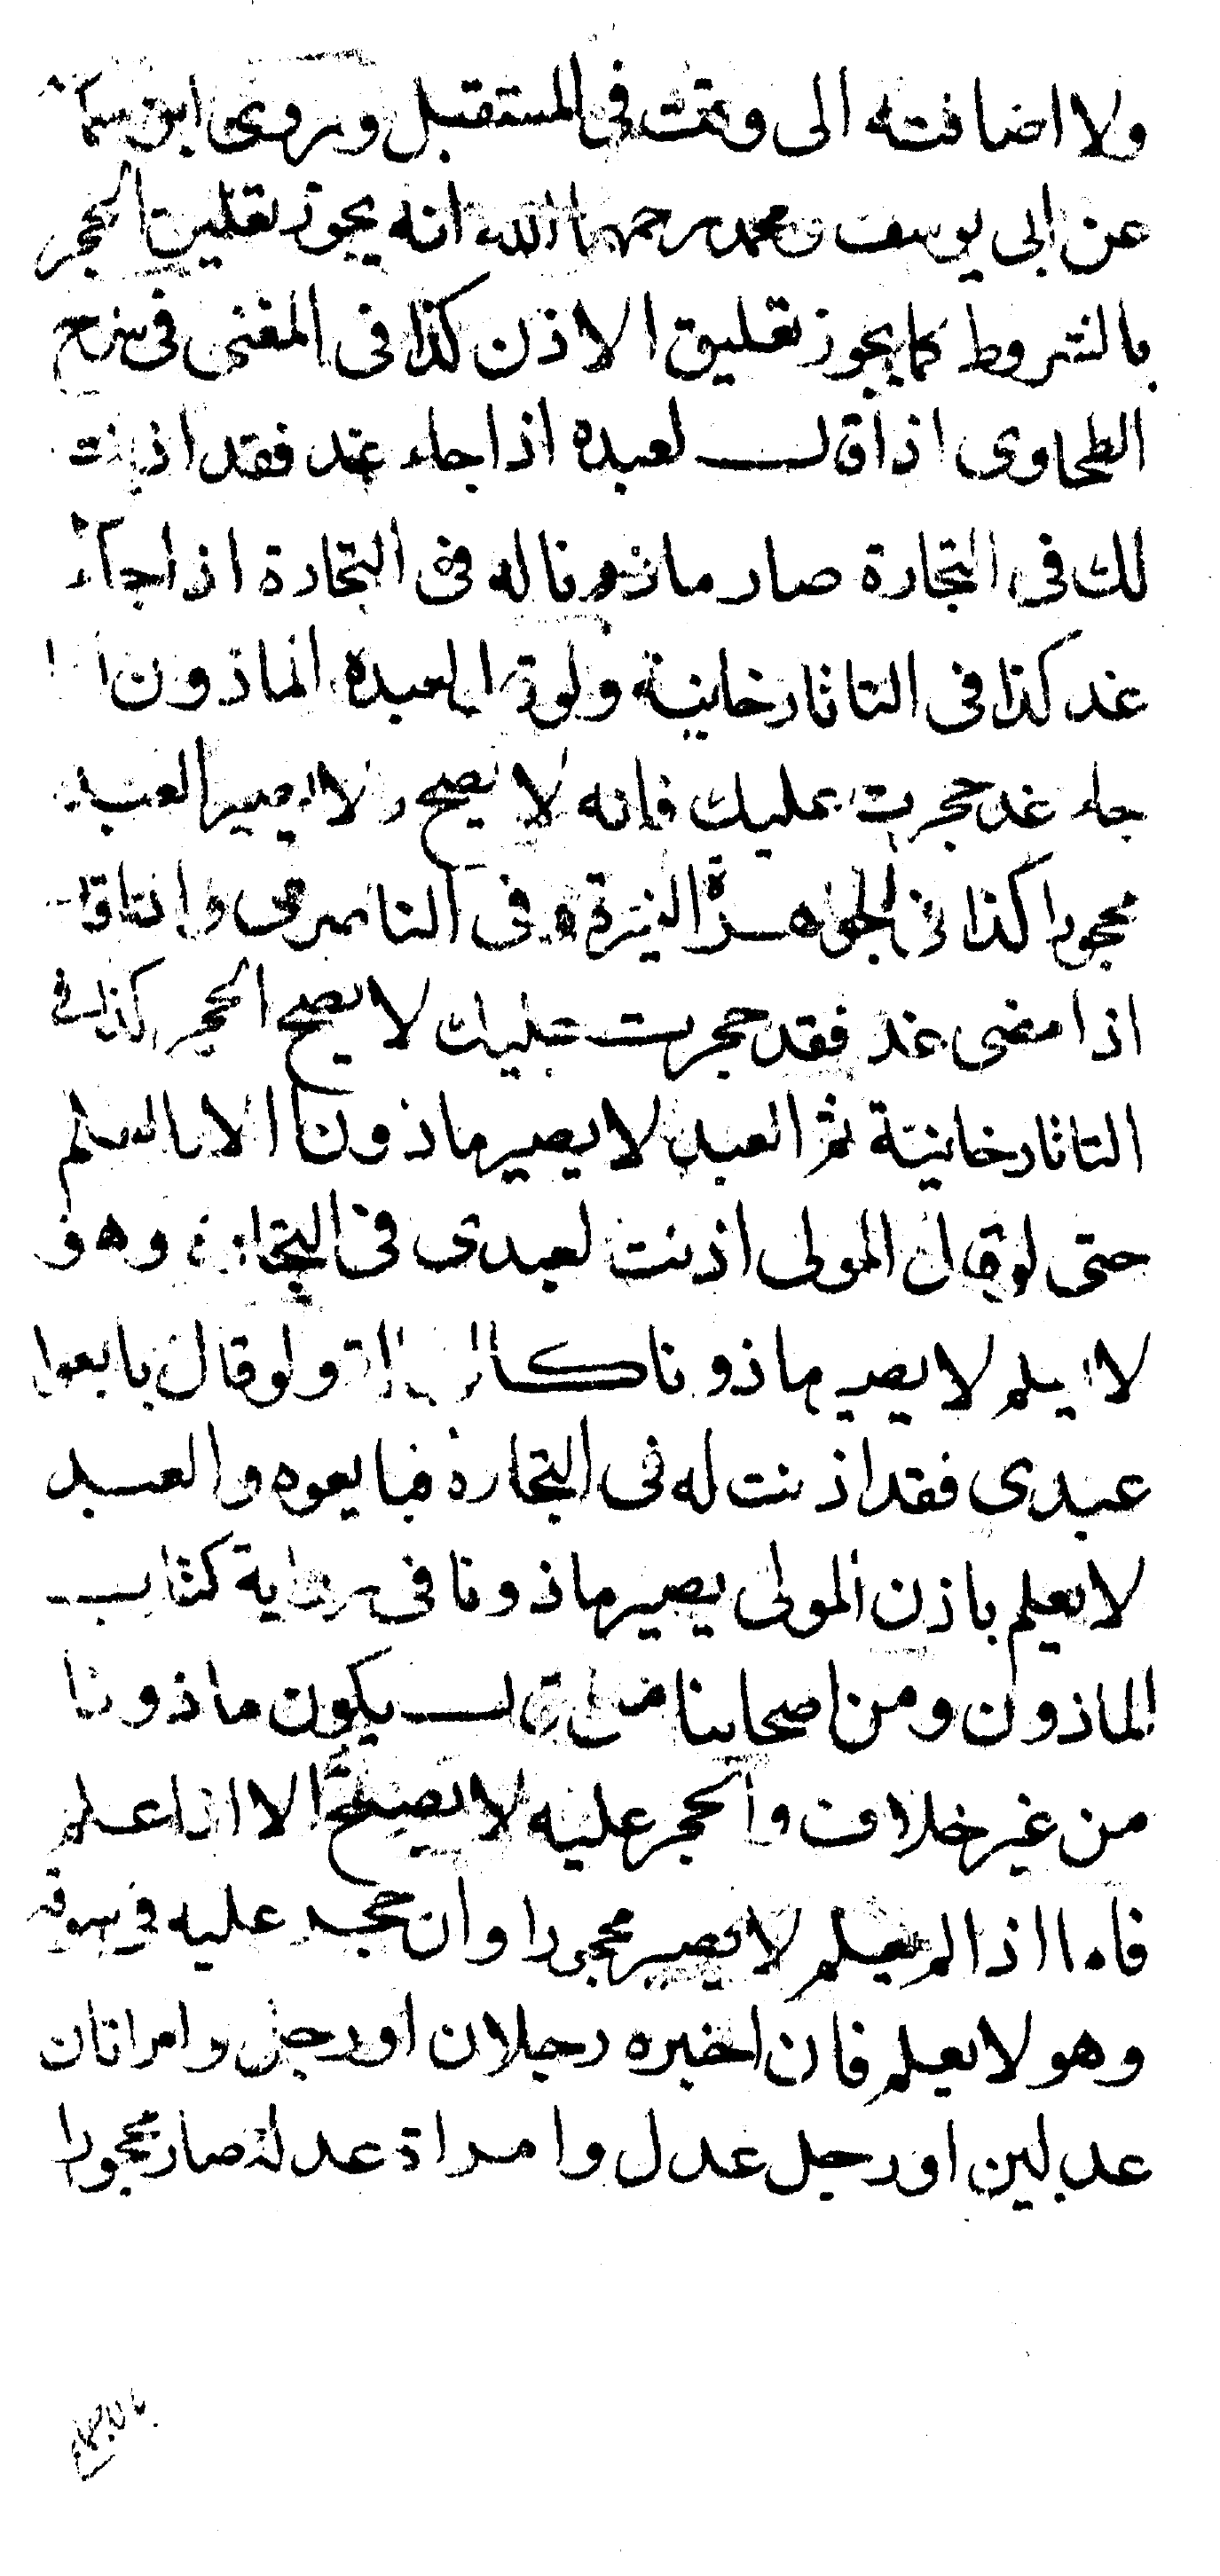 ولا اضافته الى وقت فى المستقبل وروى ابن سماعة
عن ابى يوسف ومحمد رحمهما الله انه يجوز تعليق الحجر
بالشروط كما يجوز تعليق الاذن كذا فى المغنى فى شرح
الطحاوى اذا قال لعبده اذا جاء غد فقد اذنت
لك فى التجارة صار ماذونا له فى التجارة اذا جاء
غد كذا فى التاتارخانية ولو قال لعبده الماذون اذا
جاء غد حجرت عليك فانه لا يصح ولا يصير العبد
محجورا كذا فى الجوهرة النيرة وفى الناصرى واذا قال
اذا مضى غد فقد حجرت عليك لا يصح الحجر كذا فى
التاتارخانية ثم العبد لا يصير ماذونا الا بالعلم
حتى لو قال المولى اذنت لعبدى فى التجارة وهو
لا يعلم لا يصير ماذونا ولو قال بايعوا
عبدى فقد اذنت له فى التجارة فبايعوه والعبد
لا يعلم باذن المولى يصير ماذونا فى رواية كتاب
الماذون ومن اصحابنا من قال يكون ماذونا
من غير خلاف والحجر عليه لا يصح الا اذا علم
فاما اذا لم يعلم لا يصير محجورا وان حجر عليه فى سوقه
وهو لا يعلم فان اخبره رجلان او رجل وامراتان
عدلين او رجل عدل وامراة عدلة صار محجورا